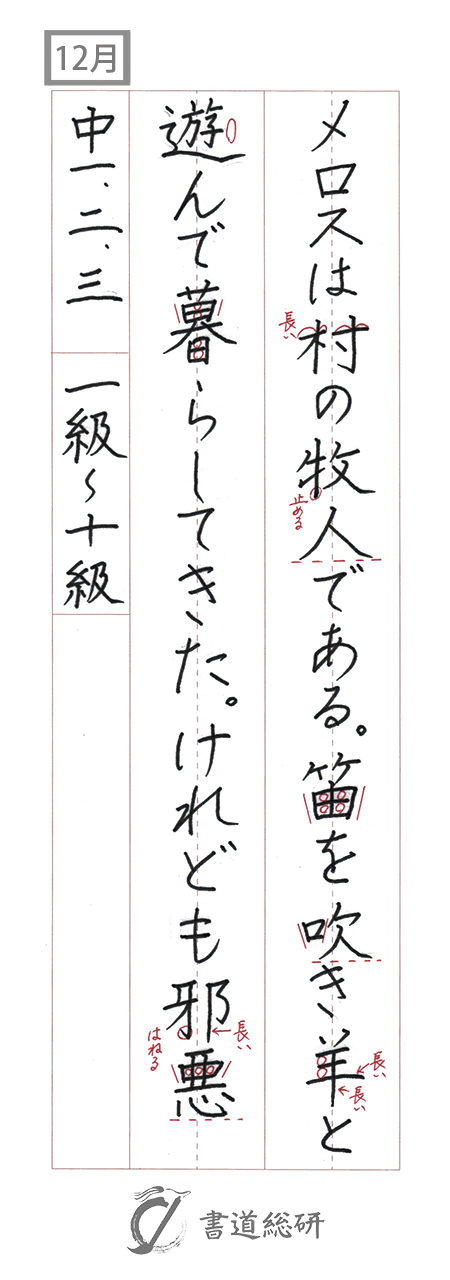 12月
メロスは村の牧人である。笛を吹き羊と
遊んで暮らしてきた。けれども邪悪
中一、二、三
一級〜十級
長い
止める
長い
長い
長い
はねる
書道総研